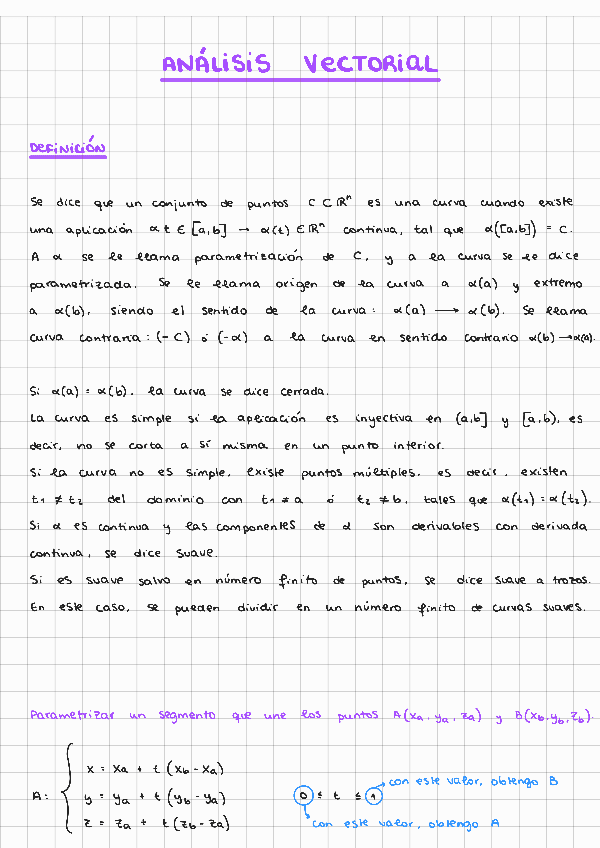 ANÁLISIS VECTORIAL
DEFINICIÓN
Se dice que un conjunto de puntos C ⊂ ℝⁿ es una curva cuando existe
una aplicación α t ∈ [a,b] → α(t) ∈ ℝⁿ continua, tal que α([a,b]) = C.
A α se le llama parametrización de C, y a la curva se le dice
parametrizada. Se le llama origen de la curva a α(a) y extremo
a α(b), siendo el sentido de la curva: α(a) ⟶ α(b). Se llama
curva contraria: (-C) ó (-α) a la curva en sentido contrario α(b)→α(a).
Si α(a) = α(b), la curva se dice cerrada.
La curva es simple si la aplicación es inyectiva en (a,b] y [a,b), es
decir, no se corta a sí misma en un punto interior.
Si la curva no es simple, existe puntos múltiples, es decir, existen
t₁ ≠ t₂ del dominio con t₁ ≠ a ó t₂ ≠ b, tales que α(t₁) = α(t₂).
Si α es continua y las componentes de α son derivables con derivada
continua, se dice suave.
Si es suave salvo en número finito de puntos, se dice suave a trozos.
En este caso, se pueden dividir en un número finito de curvas suaves.
Parametrizar un segmento que une los puntos A(xa, ya, za) y B(xb, yb, zb).
x = xa + t (xb - xa)
con este valor, obtengo B
A: { y = ya + t (yb - ya) 0 ≤ t ≤ 1
z = za + t (zb - za) con este valor, obtengo A